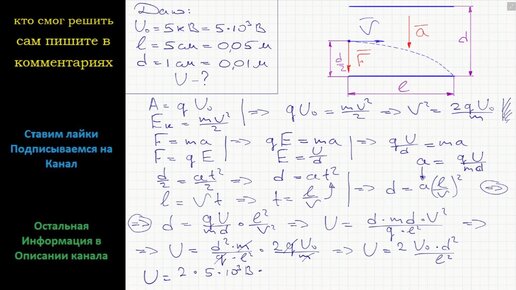 кто смог решить
сам пишите в
комментариях
Ставим лайки
Подписываемся на
Канал
Остальная
Информация в
Описании канала
Дано:
U₀ = 5кВ = 5·10³В
l = 5см = 0,05м
d = 1см = 0,01м
U - ?
V̅
a̅
F̅
d/2
d
l
A = qU₀
Eк = mv²/2 | => qU₀ = mv²/2 => V² = 2qU₀/m
F = ma
F = qE | => qE = ma
E = U/d | => qU/d = ma
a = qU/md
d/2 = at²/2 => d = at²
l = Vt => t = l/V | => d = a(l/V)²
=> d = qU/md · l²/V² => U = d·md·V²/q·l² =>
=> U = d²·m/q·l² · 2qU₀/m => U = 2U₀·d²/l²
U = 2·5·10³В·